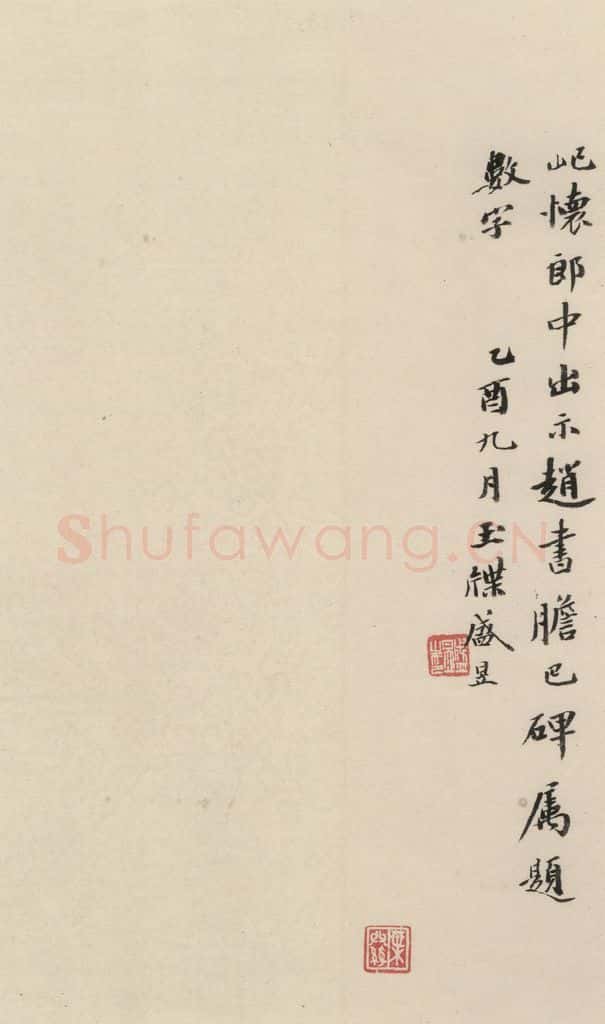 屺懷郎中出示趙書膽巴碑屬題
數字　乙酉九月玉牒盛昱
Shufawang.CN